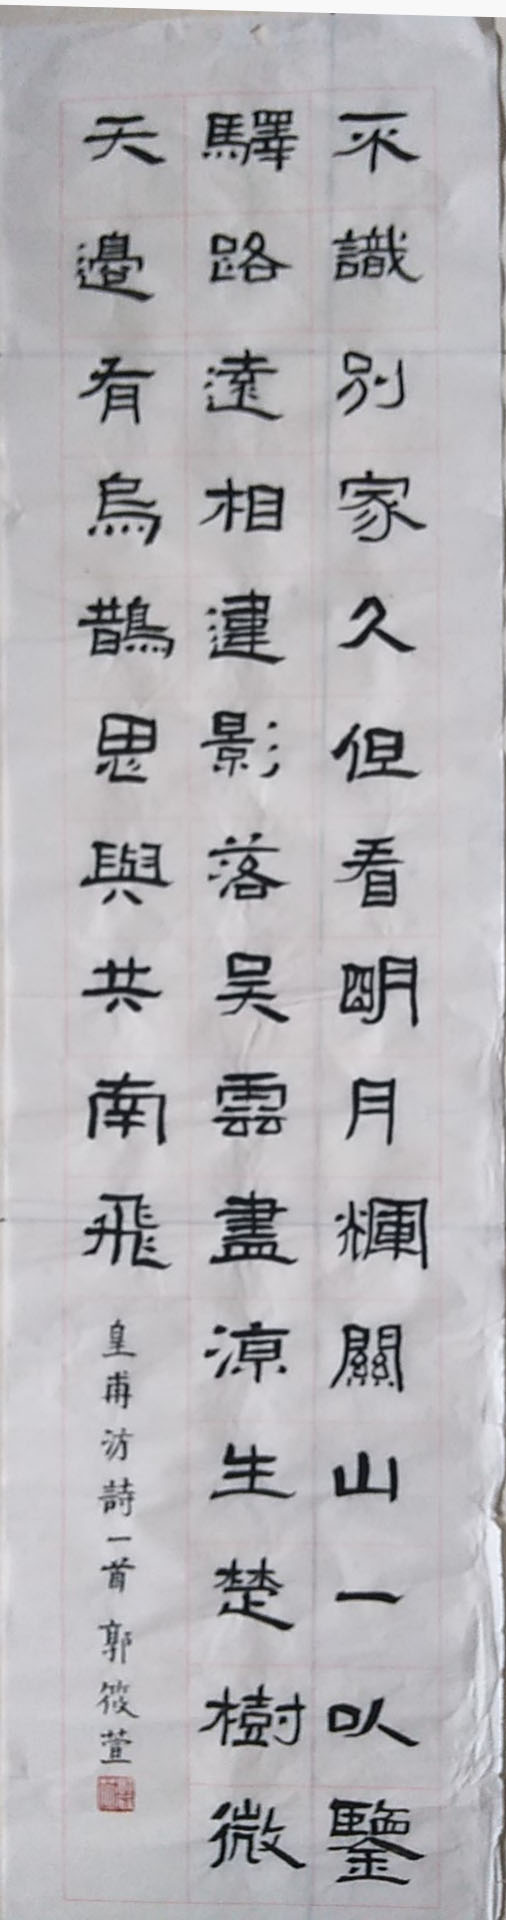 不識別家久但看明月輝關山一以鑒
驛路遠相違影落吳雲盡涼生楚樹微
天邊有烏鵲思與共南飛
皇甫汸詩一首 郭筱萱